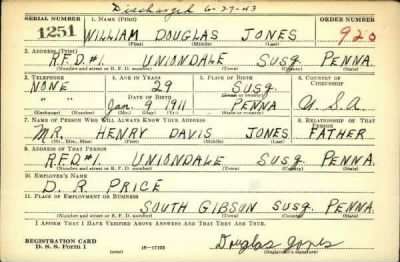 Discharged 6-27-43
SERIAL NUMBER 1. NAME (Print) ORDER NUMBER
1251 WILLIAM DOUGLAS JONES 920
(First) (Middle) (Last)
2. ADDRESS (Print)
R.F.D.#1. UNIONDALE SUSQ. PENNA.
(Number and street or R. F. D. number) (Town) (County) (State)
3. TELEPHONE 4. AGE IN YEARS 5. PLACE OF BIRTH 6. COUNTRY OF CITIZENSHIP
NONE 29 SUSQ.
DATE OF BIRTH (Town or county)
" " Jan. 9 1911 PENNA U.S.A.
(Exchange) (Number) (Mo.) (Day) (Yr.) (State or country)
7. NAME OF PERSON WHO WILL ALWAYS KNOW YOUR ADDRESS 8. RELATIONSHIP OF THAT PERSON
MR. HENRY DAVIS JONES FATHER
(Mr., Mrs., Miss) (First) (Middle) (Last)
9. ADDRESS OF THAT PERSON
R.F.D.#1. UNIONDALE SUSQ. PENNA.
(Number and street or R. F. D. number) (Town) (County) (State)
10. EMPLOYER'S NAME
D. R. PRICE
11. PLACE OF EMPLOYMENT OR BUSINESS
SOUTH GIBSON SUSQ. PENNA.
(Number and street or R. F. D. number) (Town) (County) (State)
I AFFIRM THAT I HAVE VERIFIED ABOVE ANSWERS AND THAT THEY ARE TRUE.
REGISTRATION CARD
D. S. S. Form 1 (over) 16-17105 Douglas Jones
(Registrant's signature)